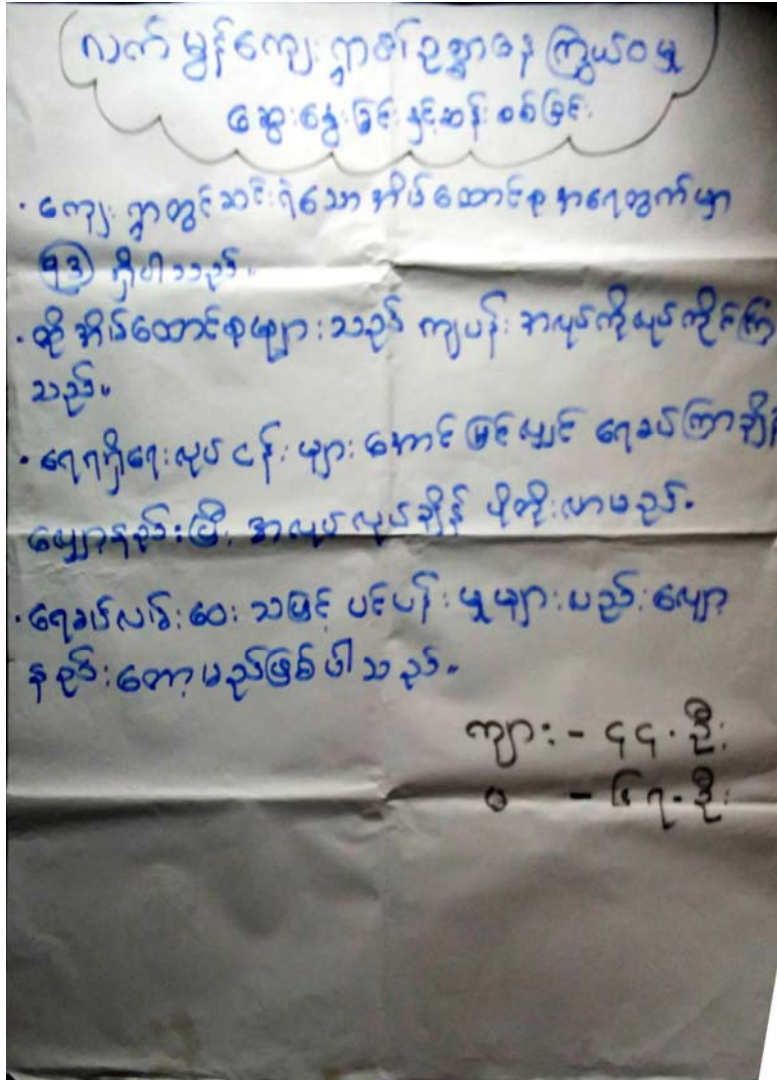 လက်မွန်ကျေးရွာ၏ဥစ္စာဓနကြွယ်ဝမှု
ဆွေးနွေးခြင်းနှင့်ဆန်းစစ်ခြင်း
· ကျေးရွာတွင်ဆင်းရဲသောအိမ်ထောင်စုအရေတွက်မှာ
၅၃ ရှိပါသည်။
· ထိုအိမ်ထောင်စုများသည် ကျပန်းအလုပ်ကိုလုပ်ကိုင်ကြ
သည်။
· ရေရရှိရေးလုပ်ငန်းများအောင်မြင်လျှင် ရေခပ်ကြာချိန်
လျော့နည်းပြီး အလုပ်လုပ်ချိန် ပိုတိုးလာမည်။
· ရေခပ်လမ်းဝေးသဖြင့် ပင်ပန်းမှုများလည်းလျော့
နည်းတော့မည်ဖြစ်ပါသည်။
ကျား - ၄၄ - ဦး
မ - ၆၇ - ဦး